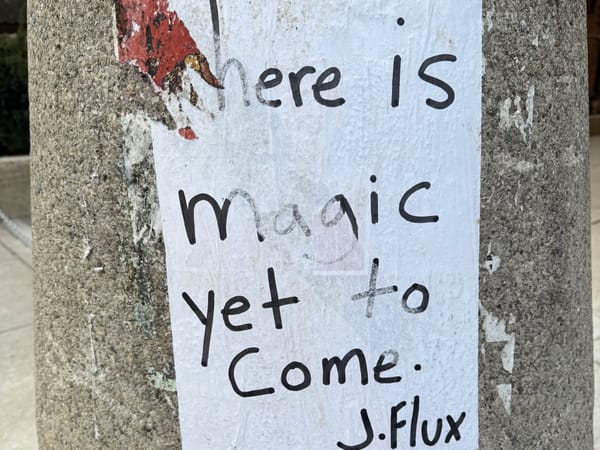 There is
magic
yet to
Come.
J.Flux